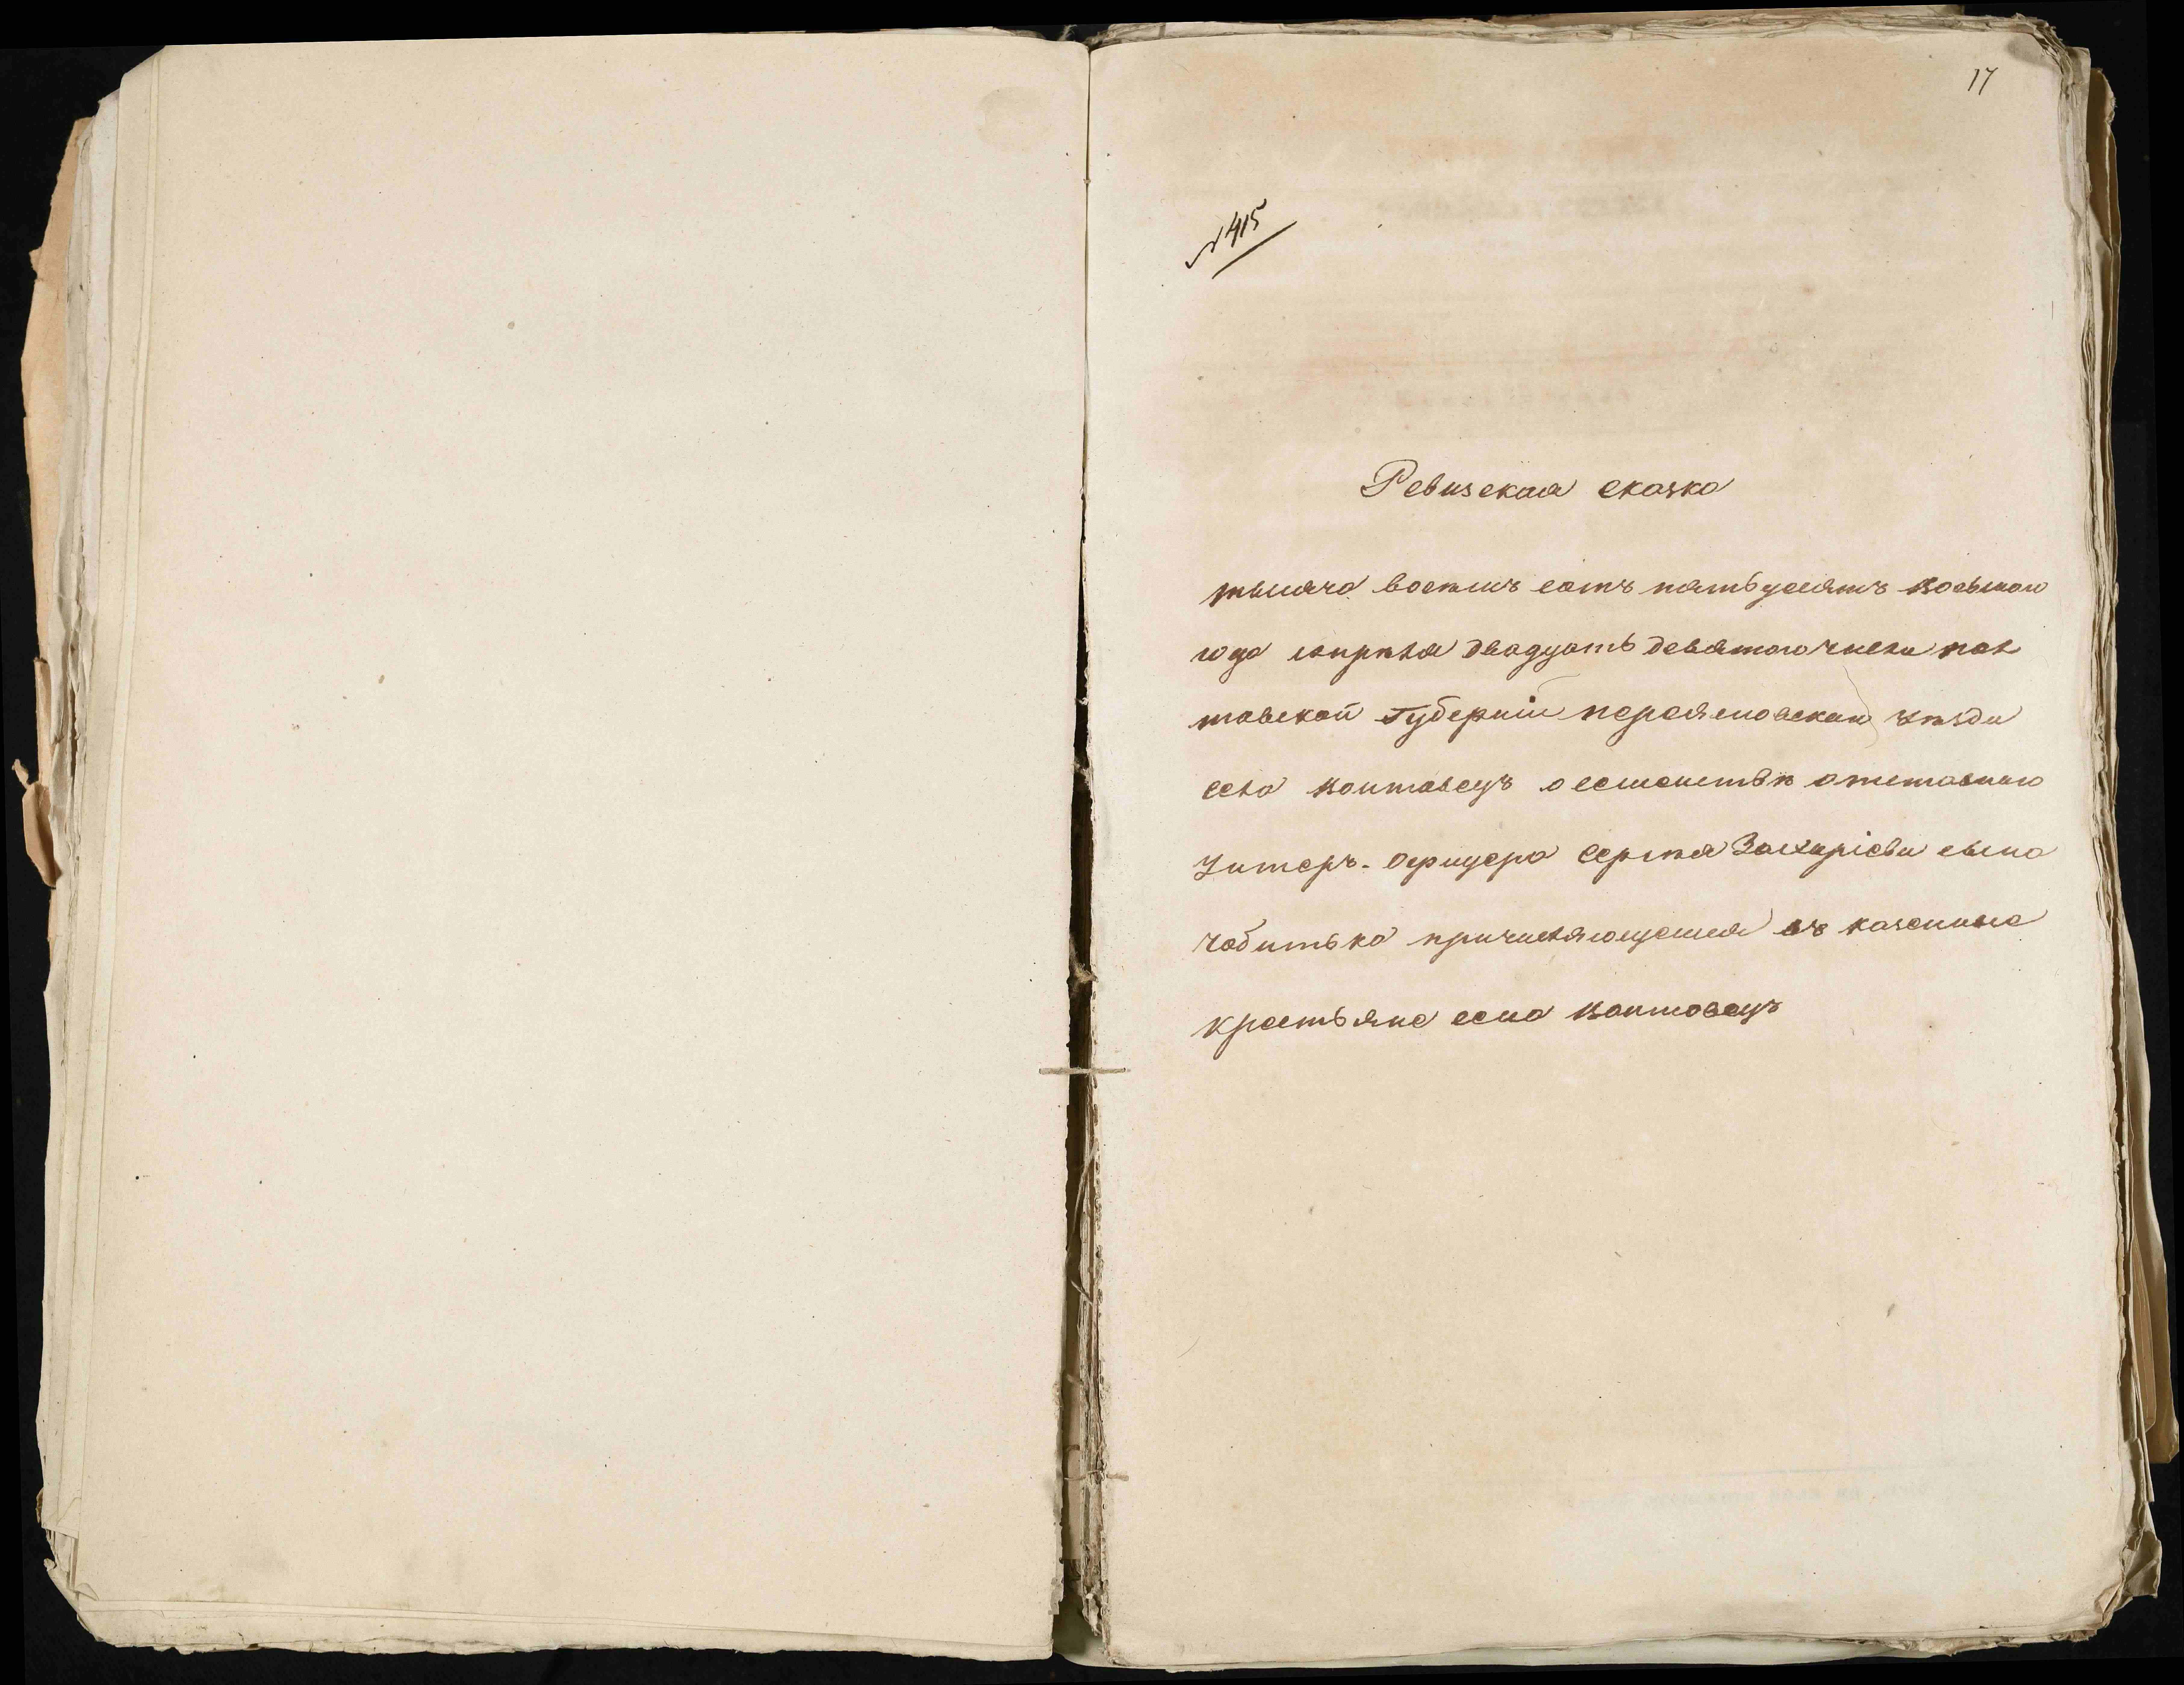 17
№ 415
Ревизская сказка
тысяча восемь сотъ пятьдесятъ восьмого
года апреля двадцать девятого числа пол
тавской Губерніи переяславскаго уезда
села войтовецъ о семействѣ отставного
Унтеръ-офицера Сергея Захаріева сына
чобитька причисляющемся въ казенные
крестьяне села войтовецъ